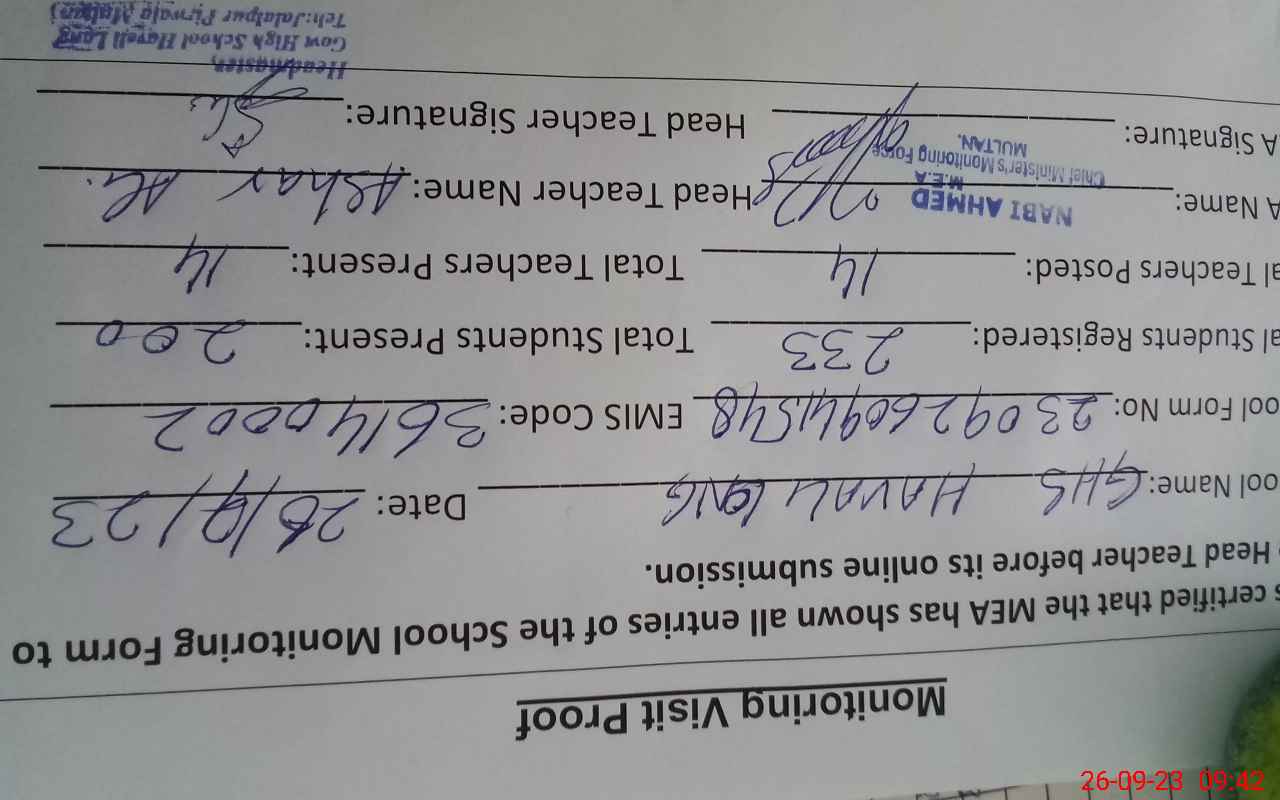 Monitoring Visit Proof
s certified that the MEA has shown all entries of the School Monitoring Form to
Head Teacher before its online submission.
ool Name: GHS HAVALI LANG Date: 26/9/23
ool Form No: 230926094548 EMIS Code: 36140002
al Students Registered: 233 Total Students Present: 200
al Teachers Posted: 14 Total Teachers Present: 14
A Name: NABI AHMED Head Teacher Name: Azhar Ali.
M.E.A
Chief Minister's Monitoring Force
MULTAN.
A Signature: Head Teacher Signature:
Headmaster,
Govt High School Haveli Lang
Teh: Jalalpur Pirwala Multan)
26-09-23 09:42